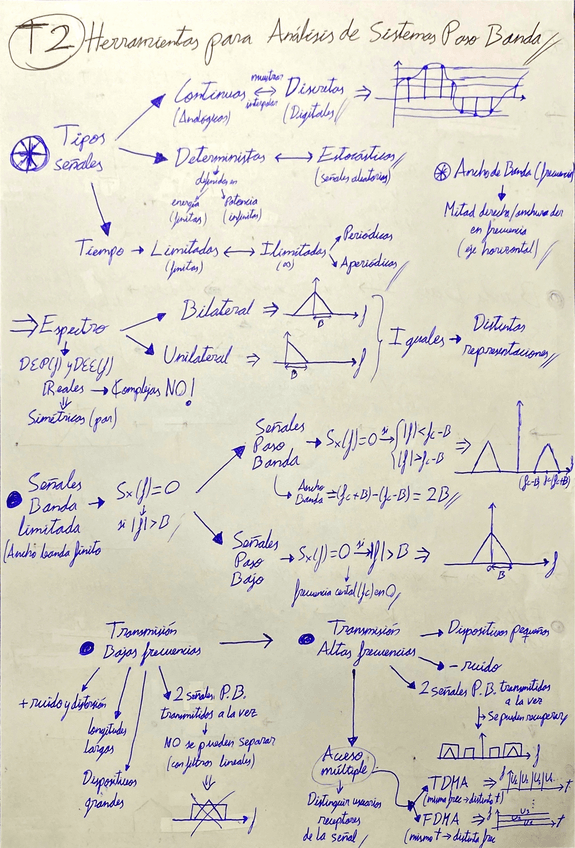 T2 Herramientas para Análisis de Sistemas Paso Banda
Tipos señales
Continuas (Analógicas)
muestreo
interpolar
Discretas (Digitales)
Deterministas
Estocásticas
(señales aleatorias)
definidas en
energía (finitas)
potencia (infinitas)
Tiempo → Limitadas ↔ Ilimitadas
(finitas)
(∞)
Periódicas
Aperiódicas
Ancho de Banda (frecuencia)
Mitad derecha/anchura der
en frecuencia
(eje horizontal)
⇒ Espectro
DEP(f) y DEE(f)
Reales → Complejas NO!
Simétricas (par)
Bilateral ⇒
B
f
Unilateral ⇒
B
f
Iguales → Distintas
representaciones
Señales
Banda
limitada
(Ancho banda finito
Sx(f)=0
si |f|>B
Señales
Paso
Banda
→ Sx(f)=0 si → { |f|<fc-B
|f|>fc-B
⇒
(fc-B) fc (fc+B)
f
Ancho
Banda = (fc+B)-(fc-B) = 2B
Señales
Paso
Bajo
→ Sx(f)=0 → |f|>B ⇒
B
f
frecuencia central (fc) en 0
Transmisión
Bajas frecuencias
+ ruido y distorsión
longitudes
largas
Dispositivos
grandes
2 señales P.B.
transmitidos a la vez
NO se pueden separar
(con filtros lineales)
f
Transmisión
Altas frecuencias
→ Dispositivos pequeños
- ruido
2 señales P.B. transmitidas
a la vez
Se pueden recuperar
f
Acceso
múltiple
Distinguir usuarios
receptores
de la señal
TDMA ⇒
(misma frec → distinto t)
t
FDMA ⇒
(mismo t → distinta frec
t